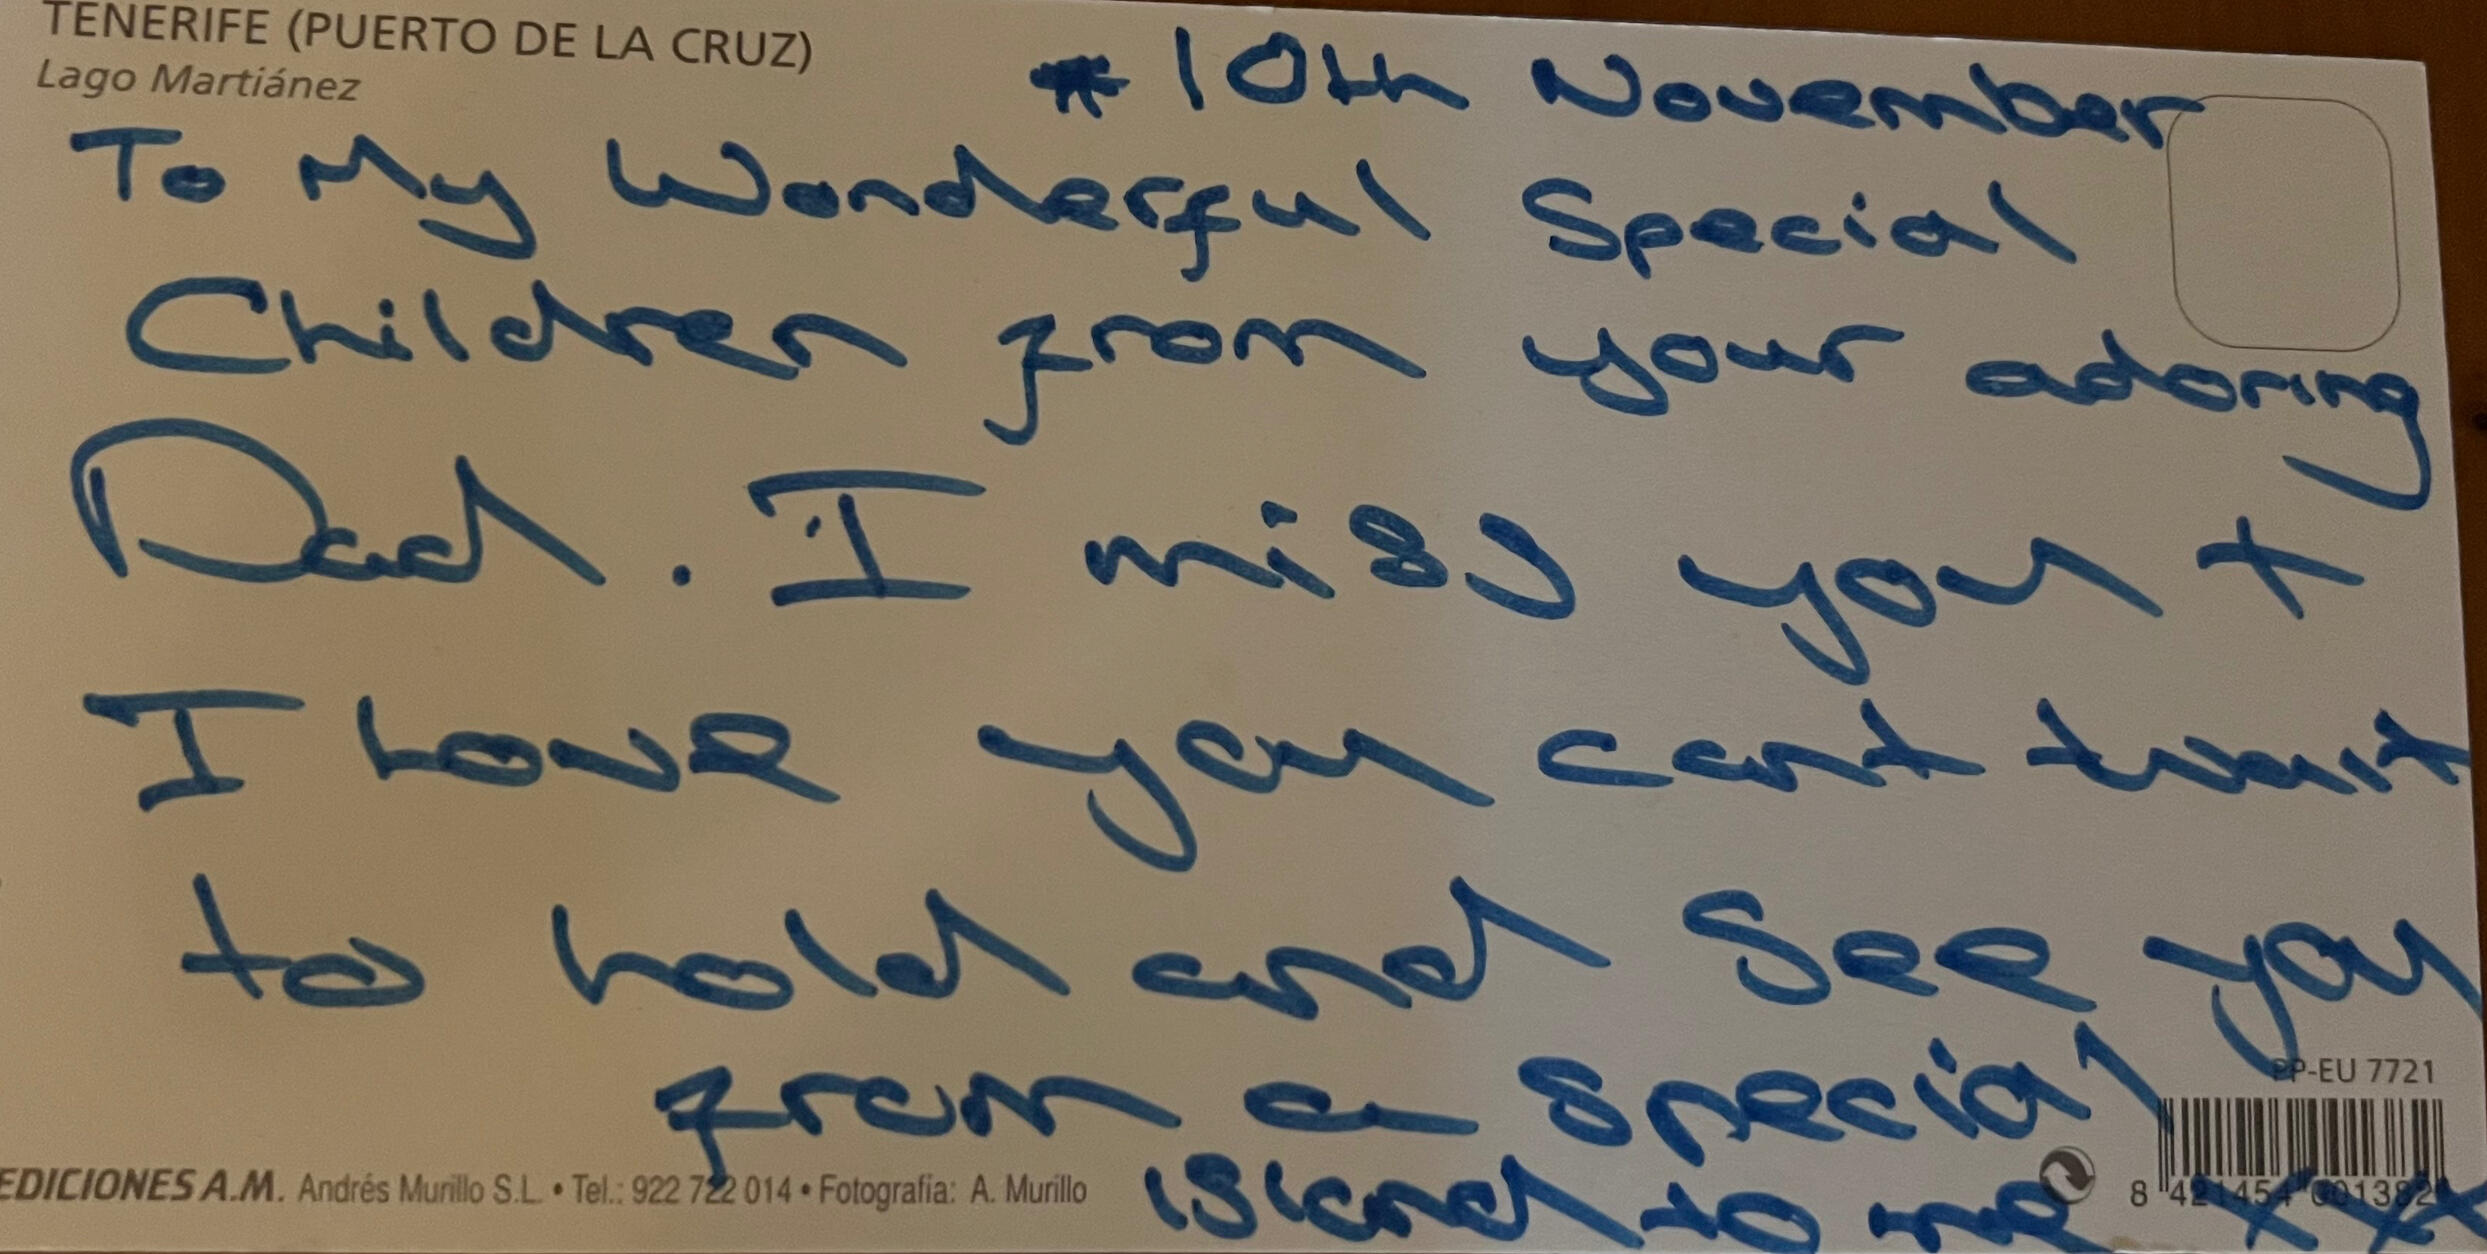 TENERIFE (PUERTO DE LA CRUZ)
Lago Martiánez
10th November
To My Wonderful Special
Children from your adoring
Dad. I miss you +
I Love you cant twait
to hold and See you
from a special
island to me xxx
PP-EU 7721
EDICIONES A.M. Andrés Murillo S.L. • Tel.: 922 722 014 • Fotografía: A. Murillo
8 421454 001382